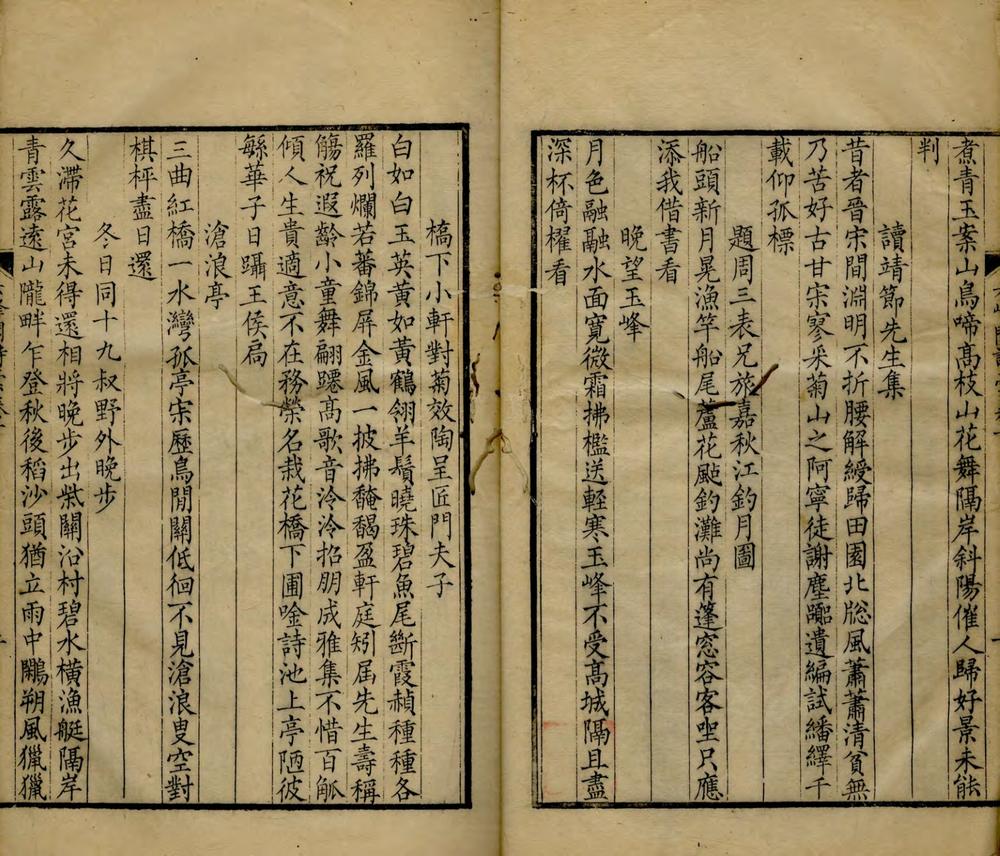 煮青玉案山鳥啼高枝山花舞隔岸斜陽催人歸好景未能
判
讀靖節先生集
昔者晉宋間淵明不折腰解綬歸田園北牎風蕭蕭清貧無
乃苦好古甘寂寥采菊山之阿寧徒謝塵嚻遺編試繙繹千
載仰孤標
題周三表兄旅嘉秋江釣月圖
船頭新月晃漁竿船尾蘆花颭釣灘尚有蓬窓容客坐只應
添我借書看
晚望玉峰
月色融融水面寬微霜拂檻送輕寒玉峰不受高城隔且盡
深杯倚櫂看
槗下小軒對菊效陶呈匠門夫子
白如白玉英黃如黃鶴翎羊鬚曉珠碧魚尾斷霞赬種種各
羅列爛若蕃錦屏金風一披拂馣馤盈軒庭矧屆先生壽稱
觴祝遐齡小童舞翩躚高歌音泠泠招朋成雅集不惜百觚
傾人生貴適意不在務榮名栽花橋下圃唫詩池上亭陋彼
緐華子日躡王侯扃
滄浪亭
三曲紅橋一水灣孤亭寂歷鳥閒關低徊不見滄浪叟空對
棋枰盡日還
冬日同十九叔野外晚步
久滯花宮未得還相將晚步出柴關沿村碧水橫漁艇隔岸
青雲露遠山隴畔乍登秋後稻沙頭猶立雨中鷴朔風獵獵